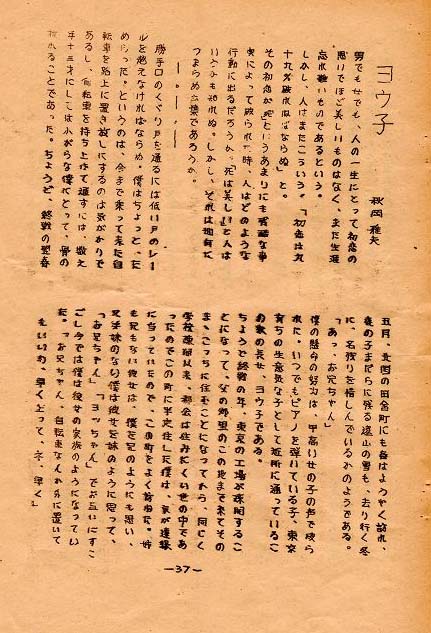 ヨウ子
秋岡雅夫
男でも女でも、人の一生にとって初恋の
思いでほど美しいものはなく、また生涯
忘れ難いものであるという。
しかし、人はまたこういう。「初恋は九
十九%破れねばならぬ」と。
その初恋が死というあまりにも残酷な事
実によって破られた時、人はどのような
行動に出るだろうか。死は美しいと人は
いうかも知れぬ。しかし、それは
つまらぬ言葉であろうか。
勝手口のくぐり戸を通るには低い戸のレー
ルを越えなければならぬ、僕はちょっと、た
めらった。というのは、今まで乗って来た自
転車を路上に置き放しにするのは気がかりで
あるし、自転車を持ち上げて通すには、数え
年十三才にしては小がらな僕にとって、骨の
折れることであった。ちょうど、終戦の翌春
五月、北国の田舎町にも春はようやく訪れ、
鹿の子まだらに残る遠山の雪も、去り行く冬
に、名残りを惜しんでいるかのようである。
「あっ、お兄ちゃん」
僕の懸命の努力は、甲高い女の子の声で破ら
れた。いつでもピアノを弾いている子、東京
育ちの生意気な子として近所に通っているこ
の家の長女、ヨウ子である。
ちょうど終戦の年、東京の工場が疎開するこ
とになって、父の郷里のこの地まで来てその
まゝこっちに住むことになってから、同じく
学校疎開以来、都会は住みにくい世の中であ
ったのでこの町に半定住した僕は、家が遠縁
に当っていたので、この町をよく訪れた。姉
も兄もない彼女は、僕を兄のようにも思い、
又弟妹のない僕は彼女を妹のように思って、
「お兄ちゃん」「ヨッちゃん」でお互いにすご
し今では僕は彼女の家族のようになってい
た。「お兄ちゃん、自転車なんか外に置いて
もいいわ、早く上って、ネ、早く」
—37—